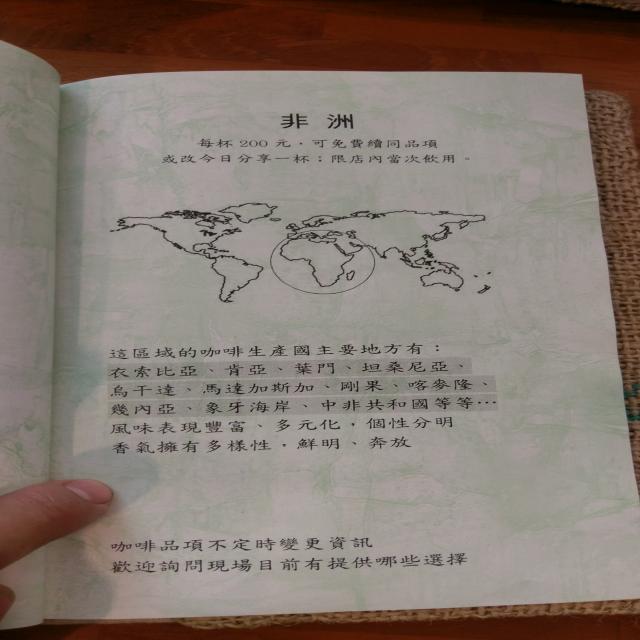 非洲
每杯 200 元，可免費續同品項
或改今日分享一杯；限店內當次飲用。
這區域的咖啡生產國主要地方有：
衣索比亞、肯亞、葉門、坦桑尼亞、
烏干達、馬達加斯加、剛果、喀麥隆、
幾內亞、象牙海岸、中非共和國等等…
風味表現豐富、多元化，個性分明
香氣擁有多樣性，鮮明、奔放
咖啡品項不定時變更資訊
歡迎詢問現場目前有提供哪些選擇